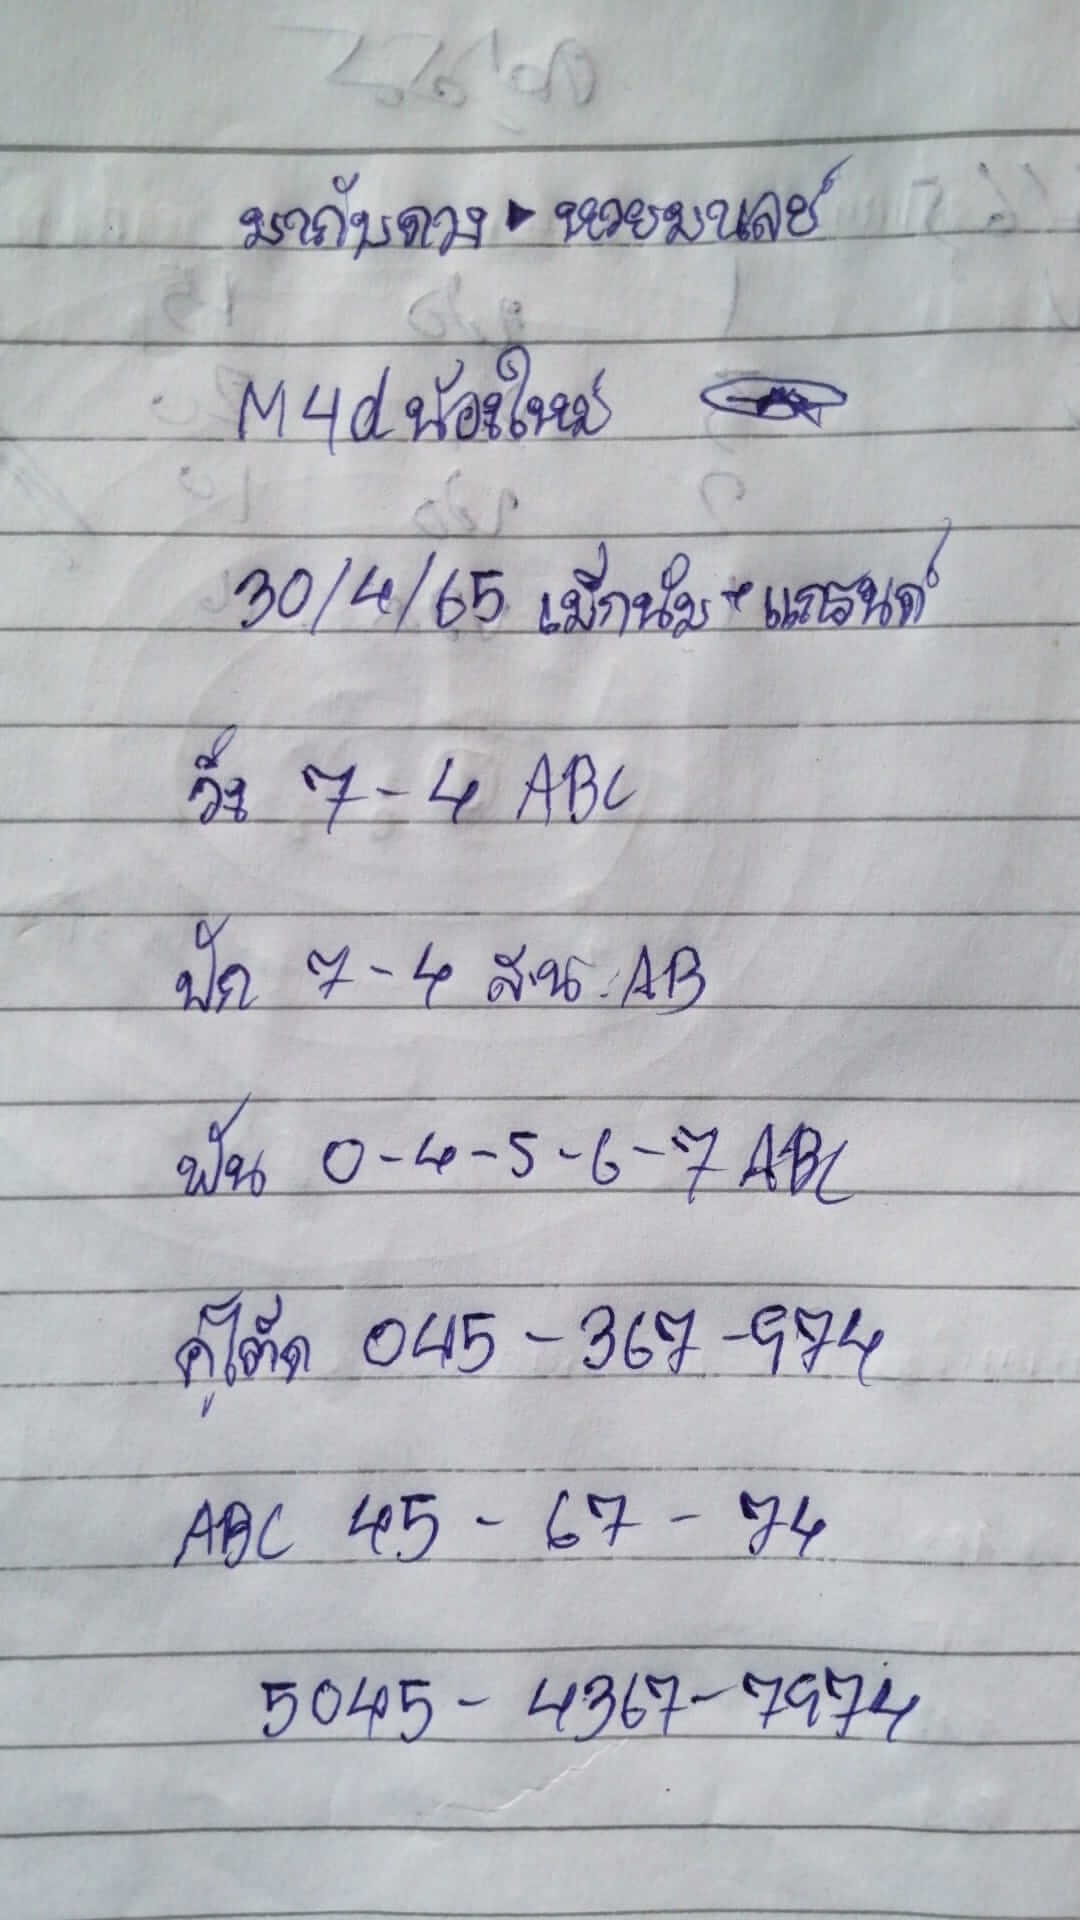 มากับดวง ▸ หวยมาเลย์
M4d น้องใหม่
30/4/65 แม็กนั่ม + แกรนด์
วิ่ง 7-4 ABC
ปัก 7-4 ส.น. AB
ฟัน 0-4-5-6-7 ABC
คู่โต๊ด 045 - 367 - 974
ABC 45 - 67 - 74
5045 - 4367 - 7974